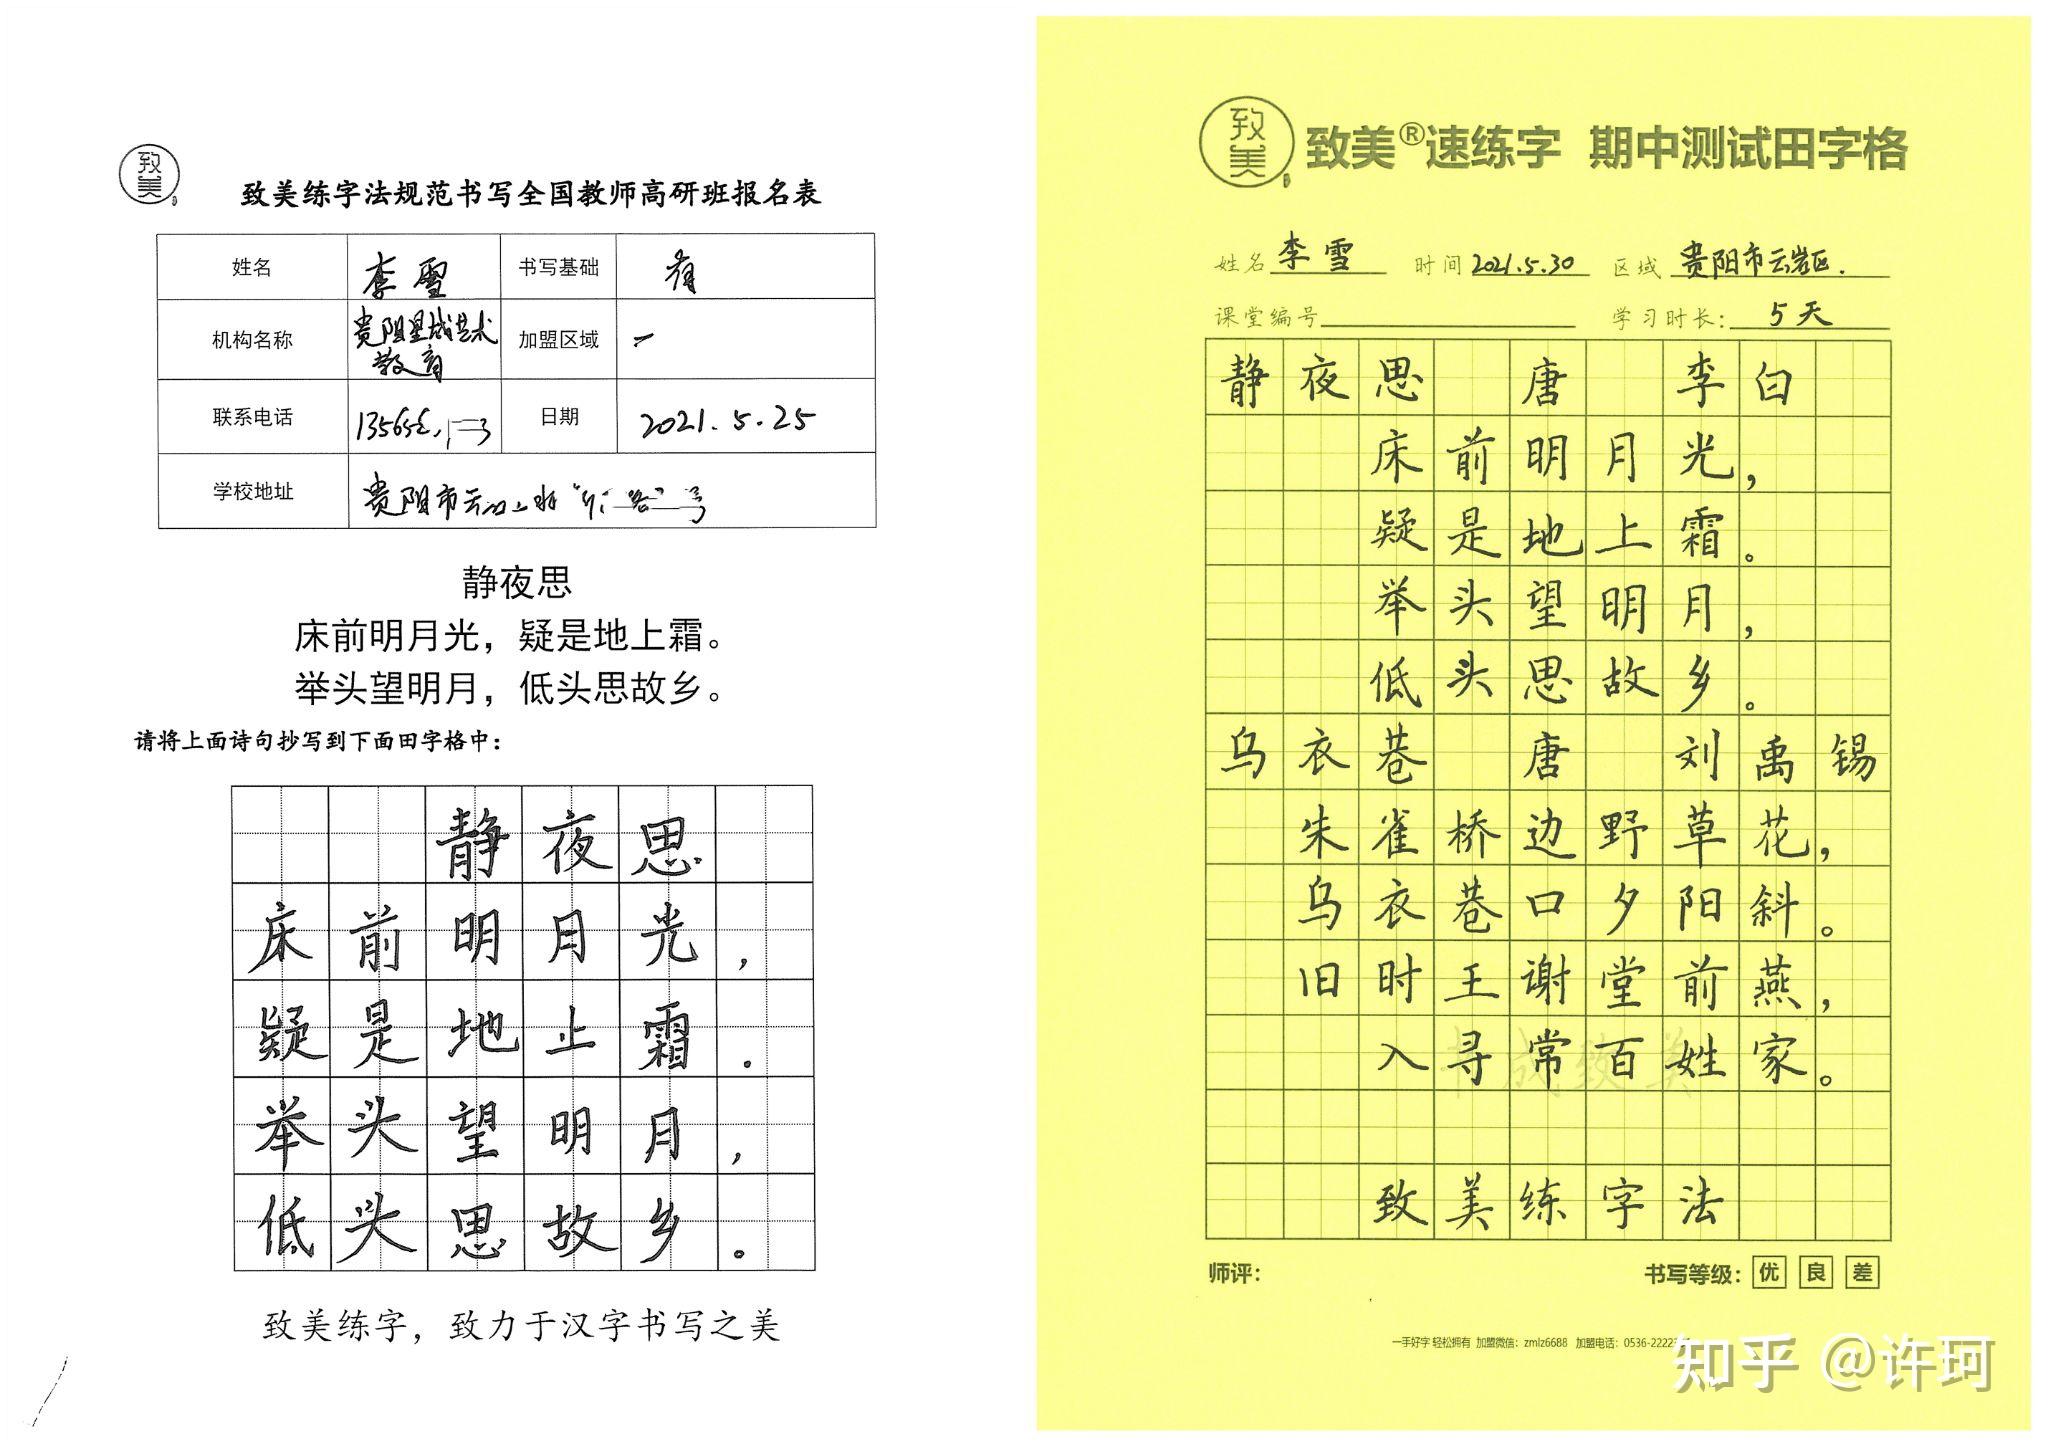 致美
致美练字法规范书写全国教师高研班报名表
姓名 李雪 书写基础 有
机构名称 贵阳星战艺术教育 加盟区域 一
联系电话 日期 2021.5.25
学校地址 贵阳市云
静夜思
床前明月光，疑是地上霜。
举头望明月，低头思故乡。
请将上面诗句抄写到下面田字格中：
静夜思
床前明月光，
疑是地上霜.
举头望明月，
低头思故乡。
致美练字，致力于汉字书写之美
致美
致美®速练字 期中测试田字格
姓名 李雪 时间 2021.5.30 区域 贵阳市云岩区.
课堂编号 学习时长: 5天
静夜思 唐 李白
床前明月光，
疑是地上霜。
举头望明月，
低头思故乡。
乌衣巷 唐 刘禹锡
朱雀桥边野草花，
乌衣巷口夕阳斜。
旧时王谢堂前燕，
入寻常百姓家。
致美练字法
师评： 书写等级： 优 良 差
一手好字 轻松拥有 加盟微信：zmlz6688 加盟电话：0536-2222
知乎 @许珂